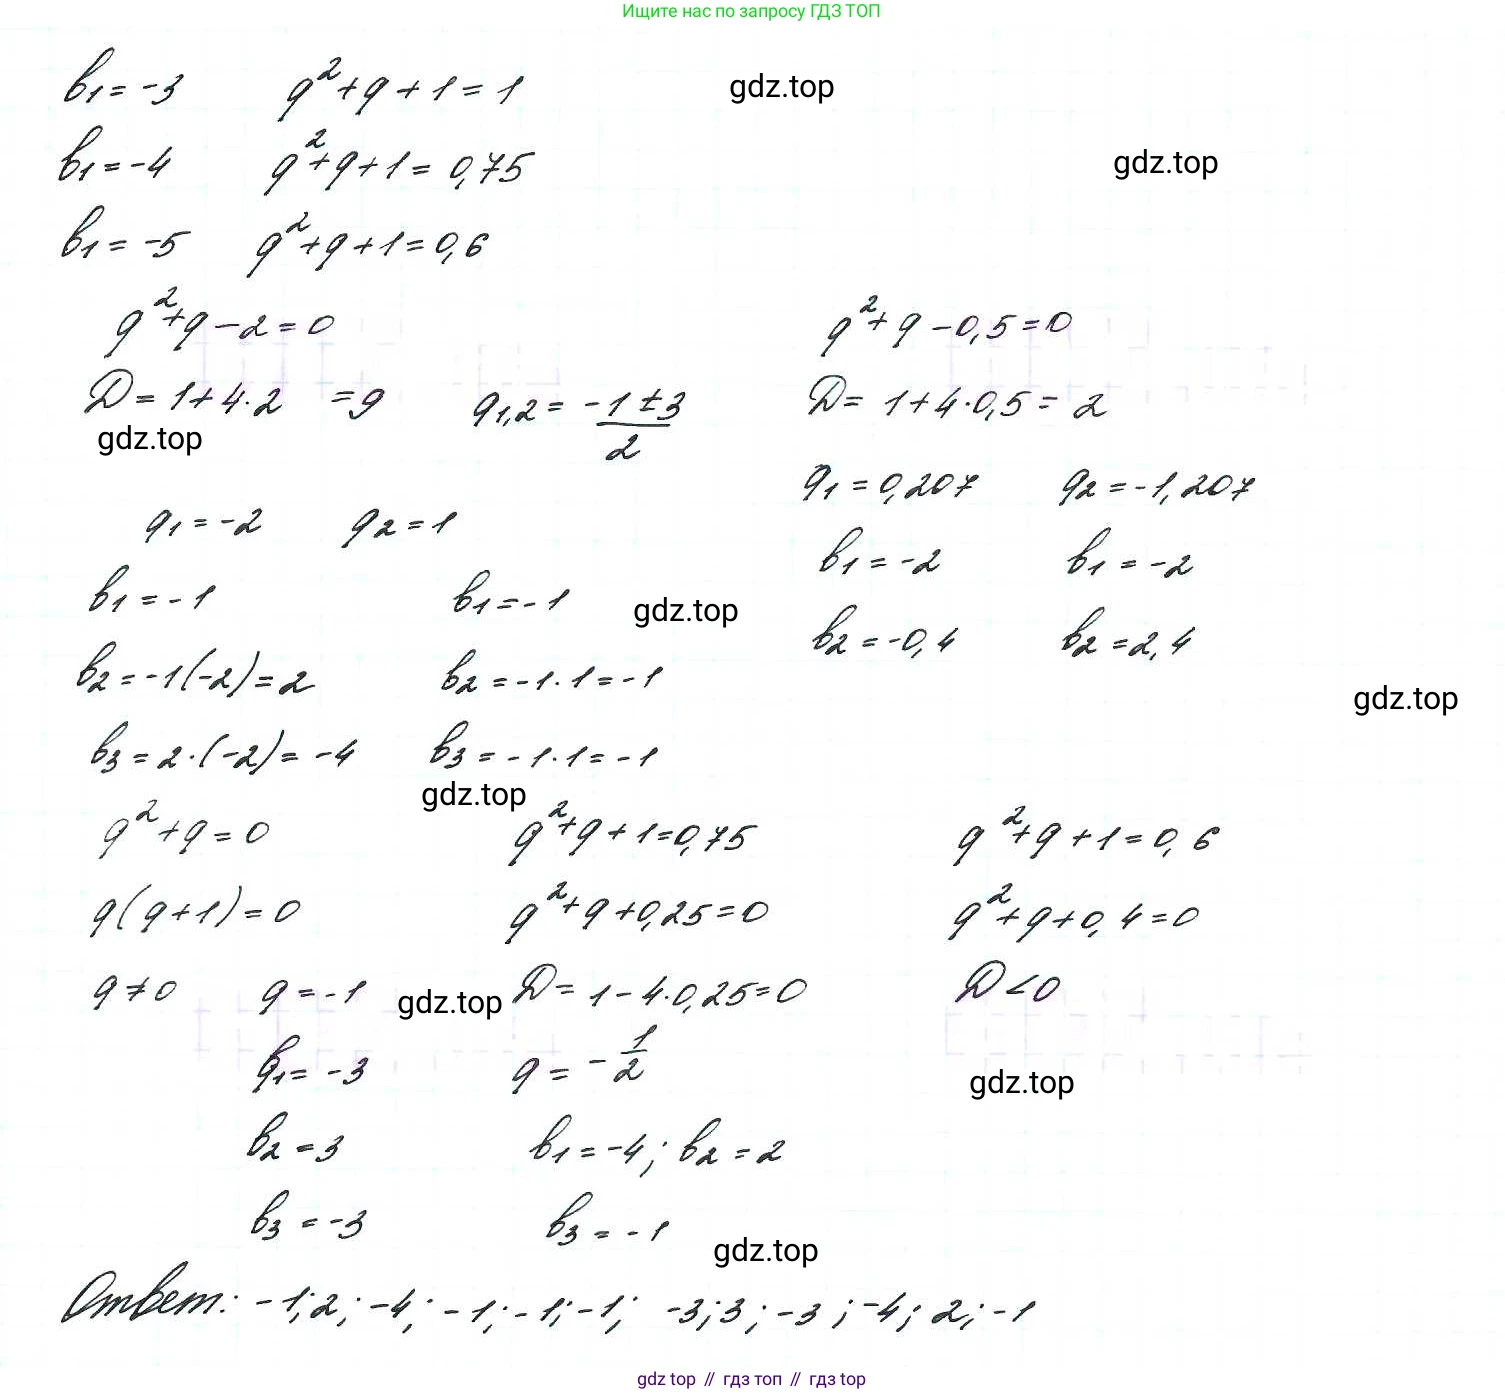 Ищите нас по запросу ГДЗ ТОП
b₁ = -3 q² + q + 1 = 1 gdz.top
b₁ = -4 q² + q + 1 = 0,75 gdz.top
b₁ = -5 q² + q + 1 = 0,6
q² + q - 2 = 0 q² + q - 0,5 = 0
D = 1 + 4 · 2 = 9 q₁,₂ = (-1 ± 3)/2 D = 1 + 4 · 0,5 = 2
gdz.top
q₁ = 0,207 q₂ = -1,207
q₁ = -2 q₂ = 1
b₁ = -2 b₁ = -2
b₁ = -1 b₁ = -1 gdz.top
b₂ = -0,4 b₂ = 2,4
b₂ = -1(-2) = 2 b₂ = -1 · 1 = -1
gdz.top
b₃ = 2 · (-2) = -4 b₃ = -1 · 1 = -1
gdz.top
q² + q = 0 q² + q + 1 = 0,75 q² + q + 1 = 0,6
q(q + 1) = 0 q² + q + 0,25 = 0 q² + q + 0,4 = 0
q ≠ 0 q = -1 gdz.top D = 1 - 4 · 0,25 = 0 D < 0
b₁ = -3 q = -1/2
gdz.top
b₂ = 3 b₁ = -4; b₂ = 2
b₃ = -3 b₃ = -1
gdz.top
Ответ: -1; 2; -4; -1; -1; -1; -3; 3; -3; -4; 2; -1
gdz top // гдз топ // гдз top